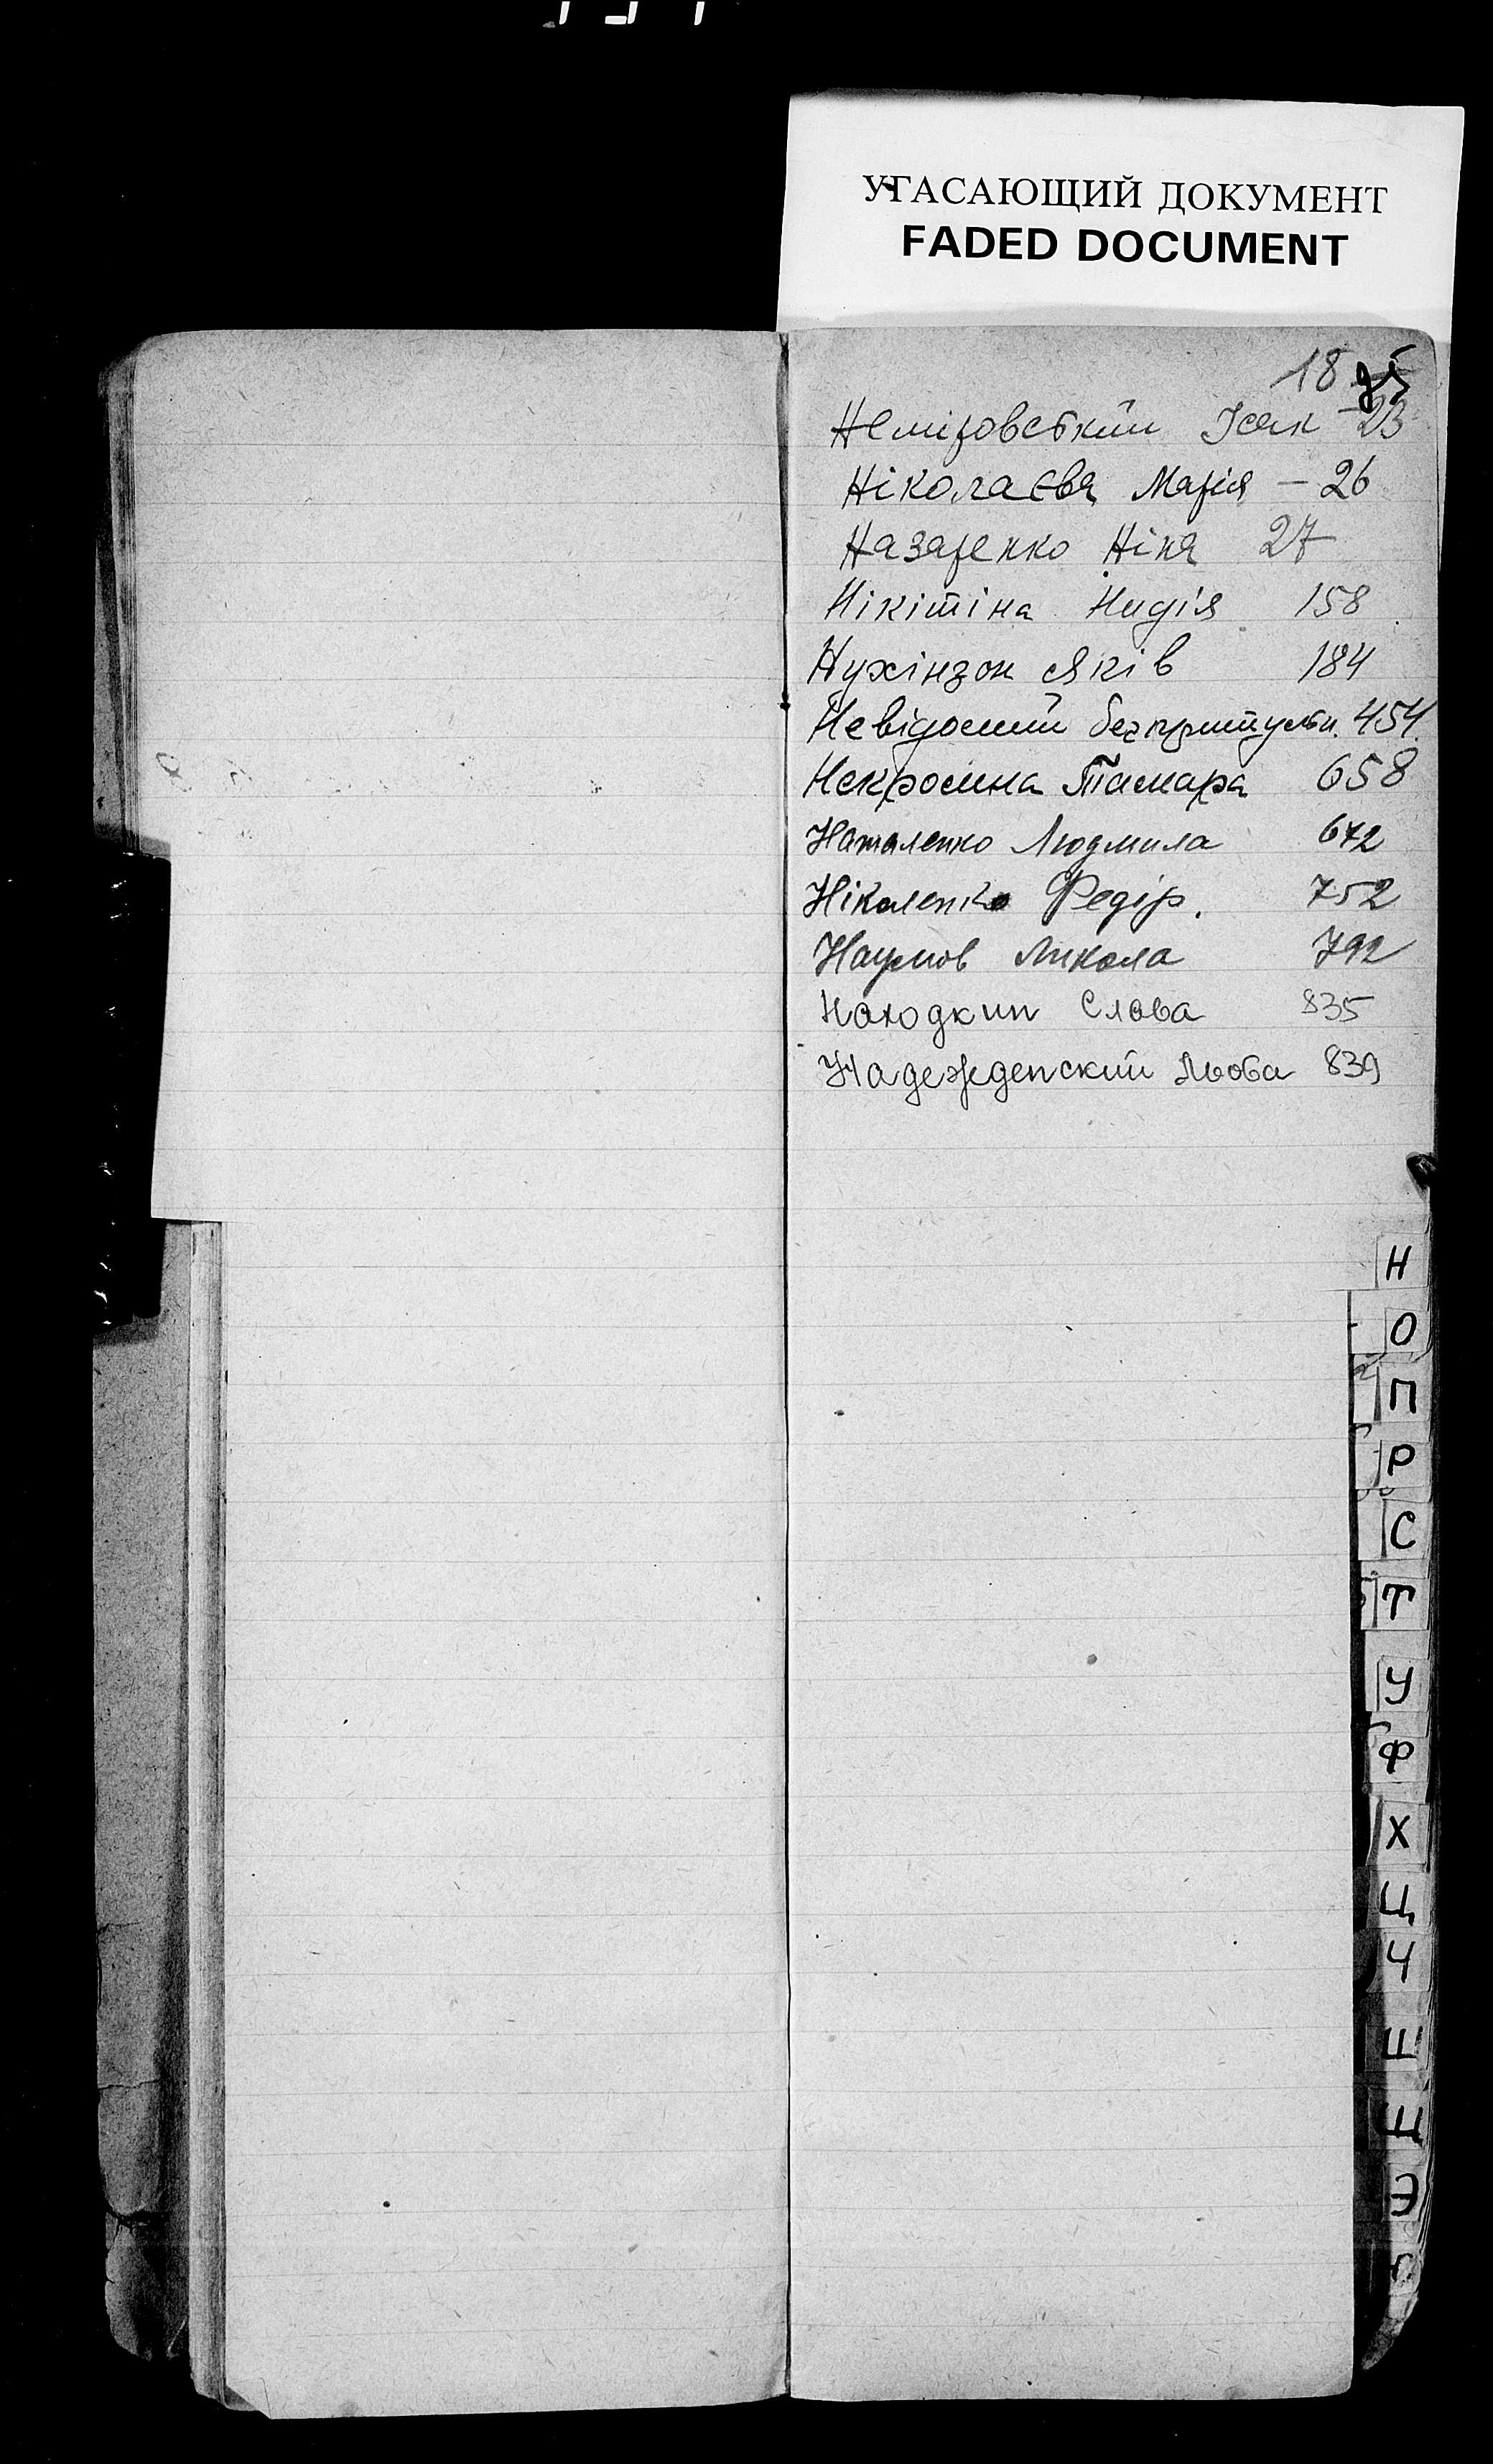 УГАСАЮЩИЙ ДОКУМЕНТ
FADED DOCUMENT
18
Неміровський Ісак - 23
Ніколаєва Марія - 26
Назаренко Ніна 27
Нікітіна Надія 158
Нухінзон Яків 184
Невідомий безпритульн. 454
Некросина Тамара 658
Наталенко Людмила 672
Ніколенко Федір. 752
Наумов Микола 792
Находкин Слава 835
Надежденский Люба 839
Н
О
П
Р
С
Т
У
Ф
Х
Ц
Ч
Ш
Щ
Э